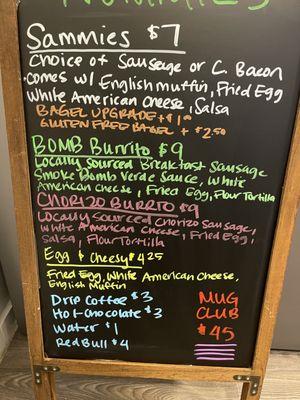 Sammies $7
Choice of Sausage or C. Bacon
comes w/ English muffin, Fried Egg
White American cheese, Salsa
BAGEL UPGRADE + $1.00
GLUTEN FREE BAGEL + $2.50
BOMB Burrito $9
Locally Sourced Breakfast Sausage
Smoke Bomb Verde Sauce, White
American cheese, Fried Egg, Flour Tortilla
CHORIZO BURRITO $9
Locally sourced Chorizo Sausage,
White American Cheese, Fried Egg,
Salsa, Flour Tortilla
Egg & Cheesy $4.25
Fried Egg, White American Cheese,
English Muffin
Drip Coffee $3
Hot Chocolate $3
Water $1
Red Bull $4
MUG
CLUB
$45